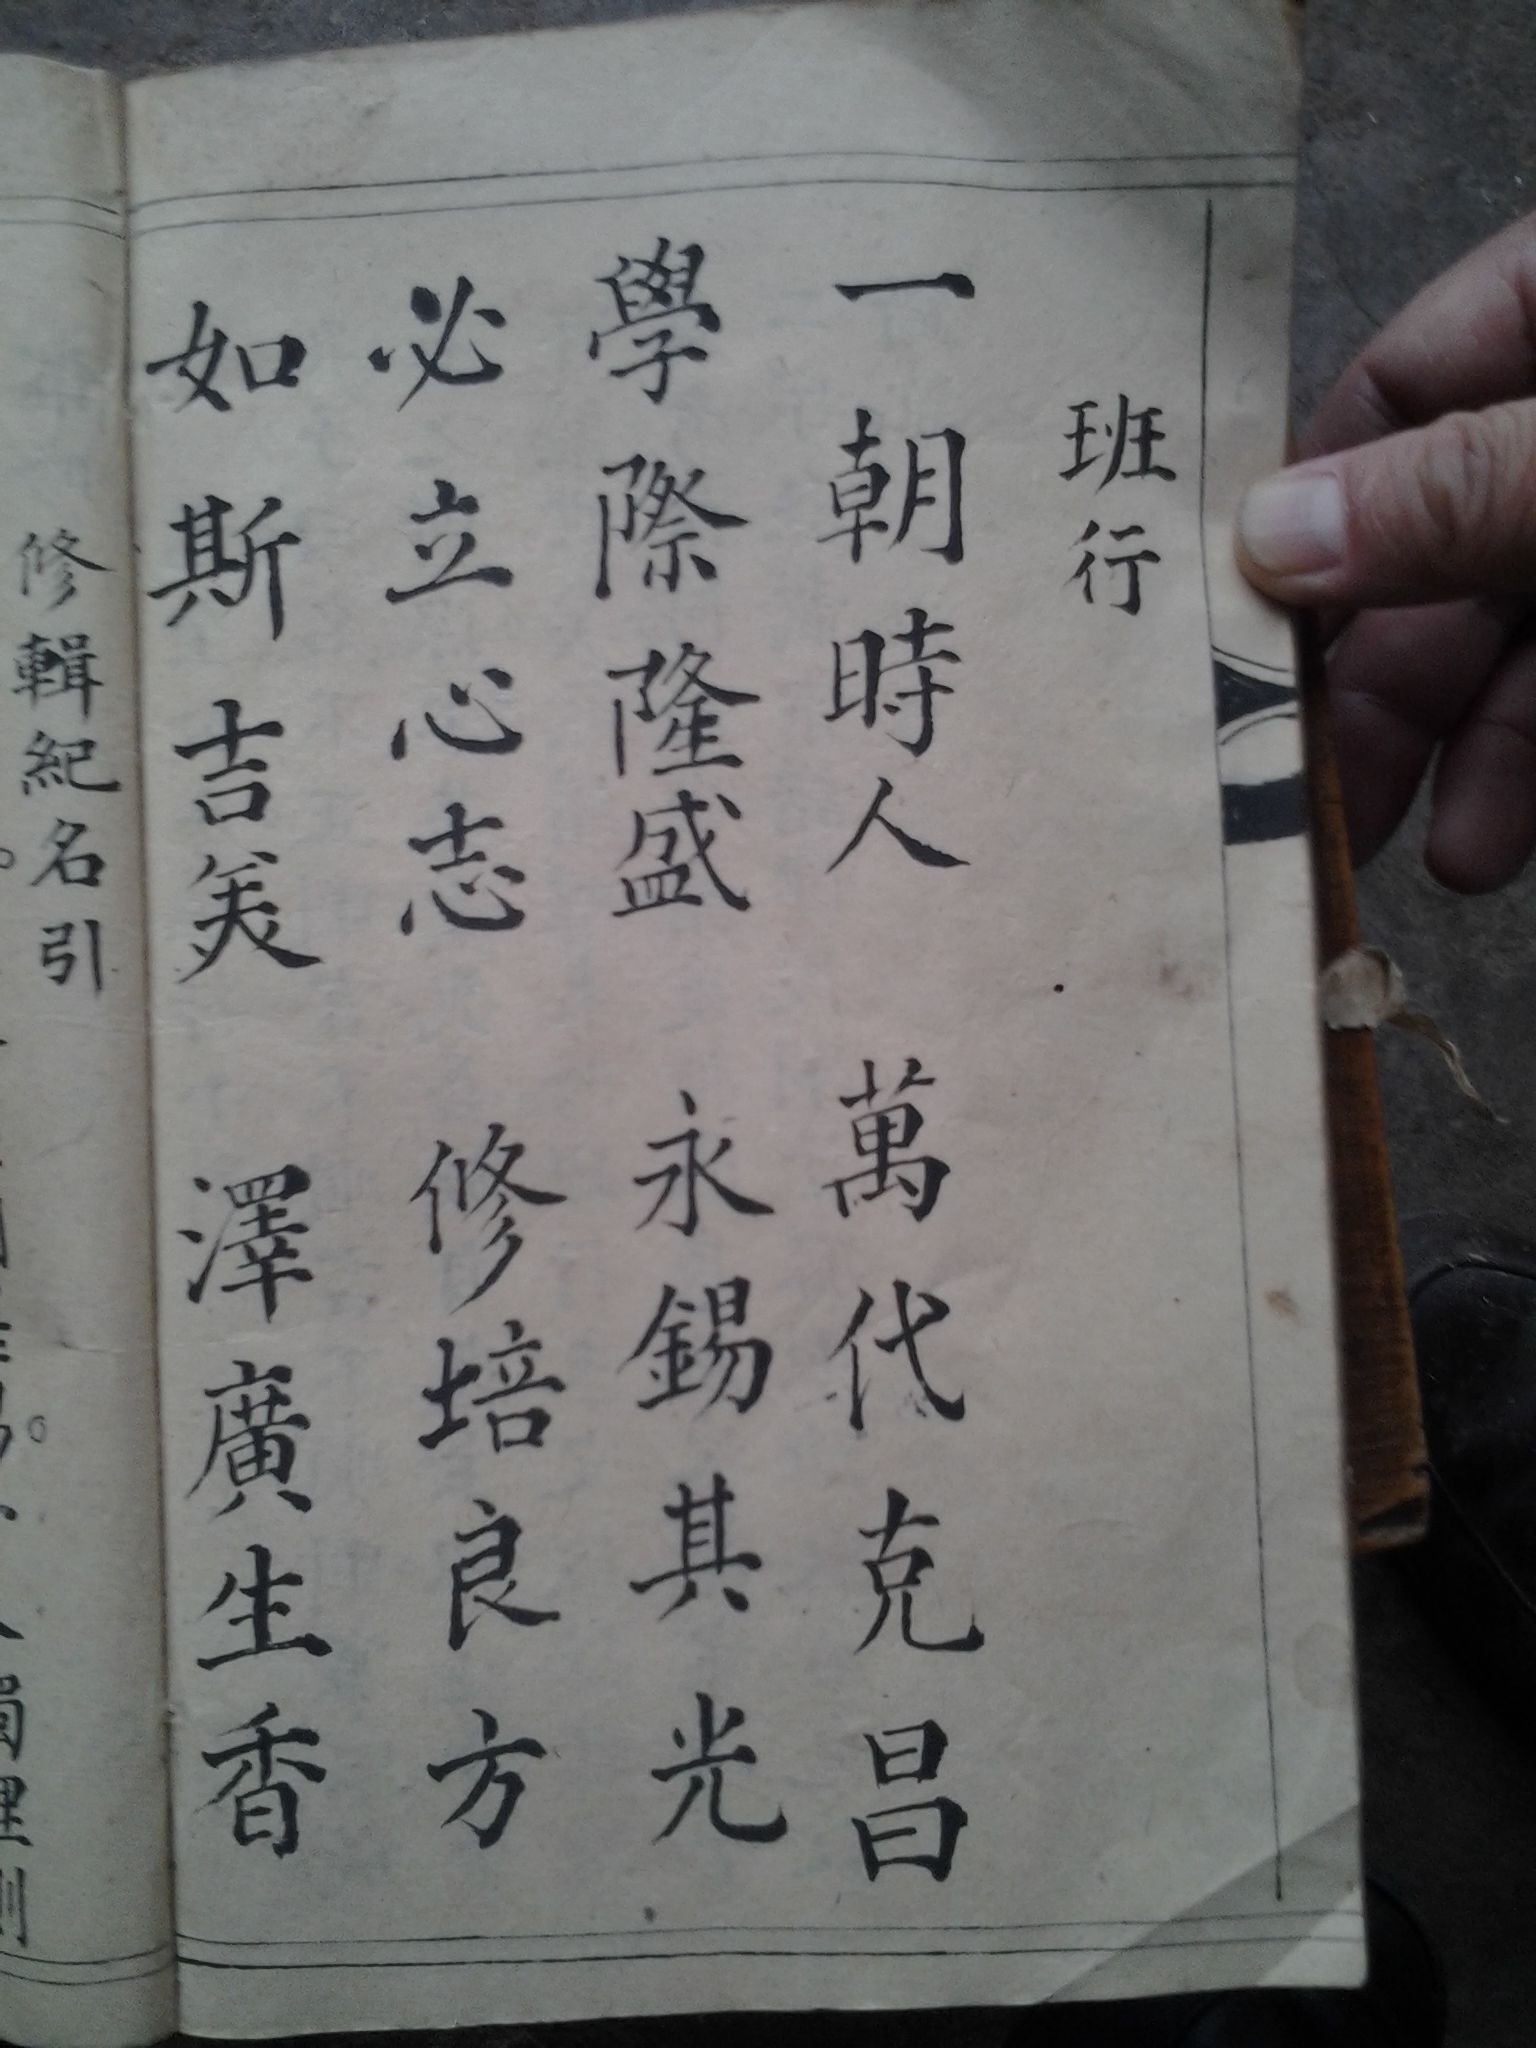 班行
一朝時人 萬代克昌
學際隆盛 永錫其光
必立心志 修培良方
如斯吉美 澤廣生香
修輯紀名引